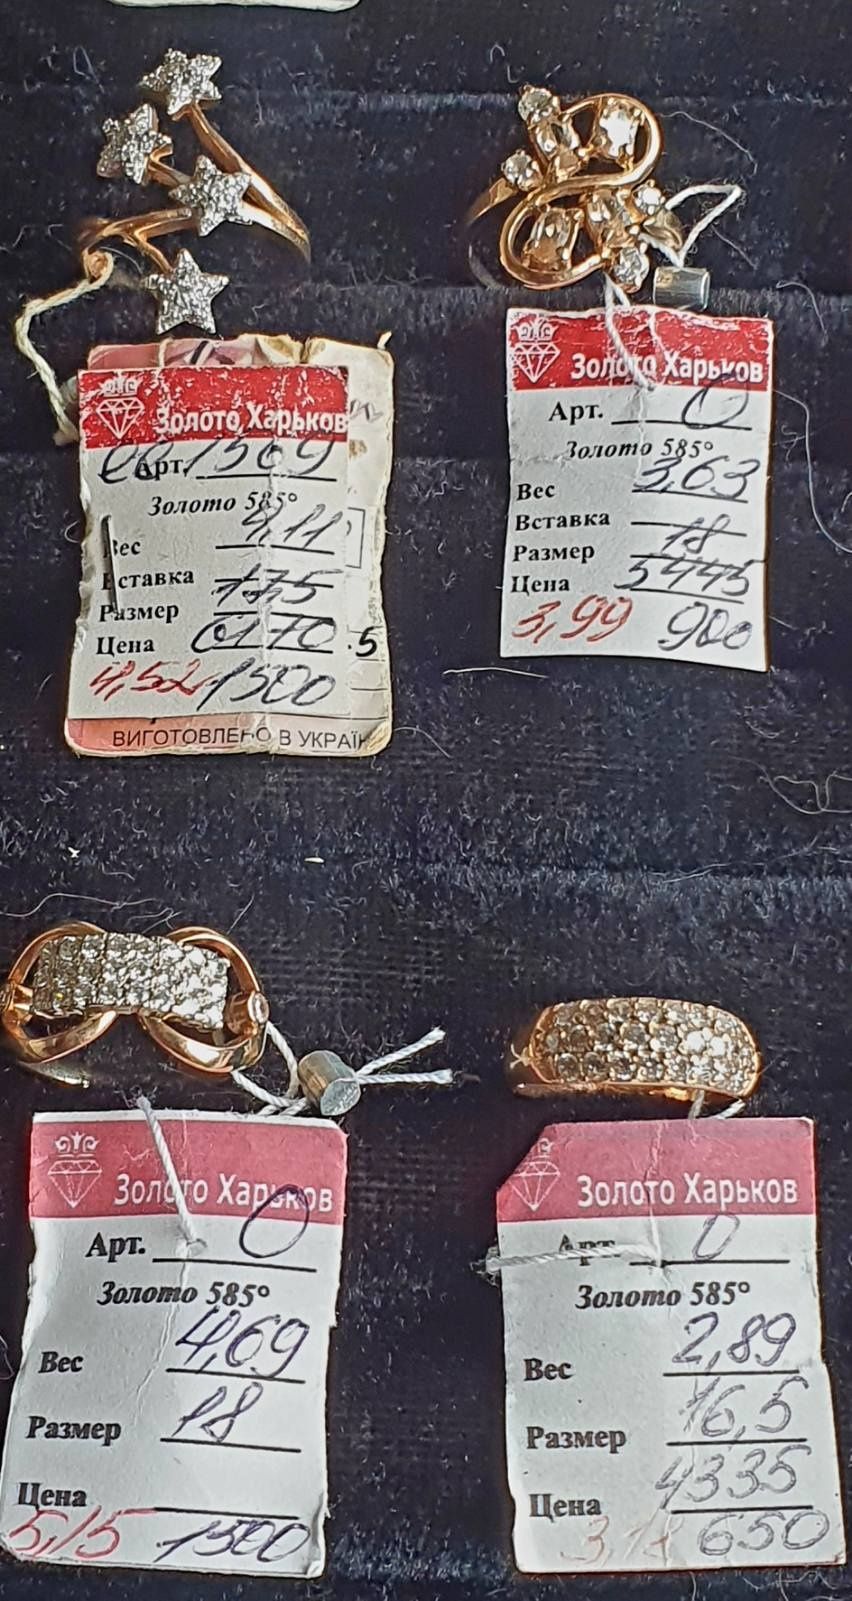 Золото Харьков
Арт. 1569
Золото 585°
Вес 4,11
Вставка
Размер 17,5
Цена 6170.5
4,52 1500
ВИГОТОВЛЕНО В УКРАЇН
Золото Харьков
Арт. 0
Золото 585°
Вес 3,63
Вставка
Размер 18
Цена 5445
3,99 900
Золото Харьков
Арт. 0
Золото 585°
Вес 4,69
Размер 18
Цена
5,15 1500
Золото Харьков
Арт. 0
Золото 585°
Вес 2,89
Размер 16,5
Цена 4335
650